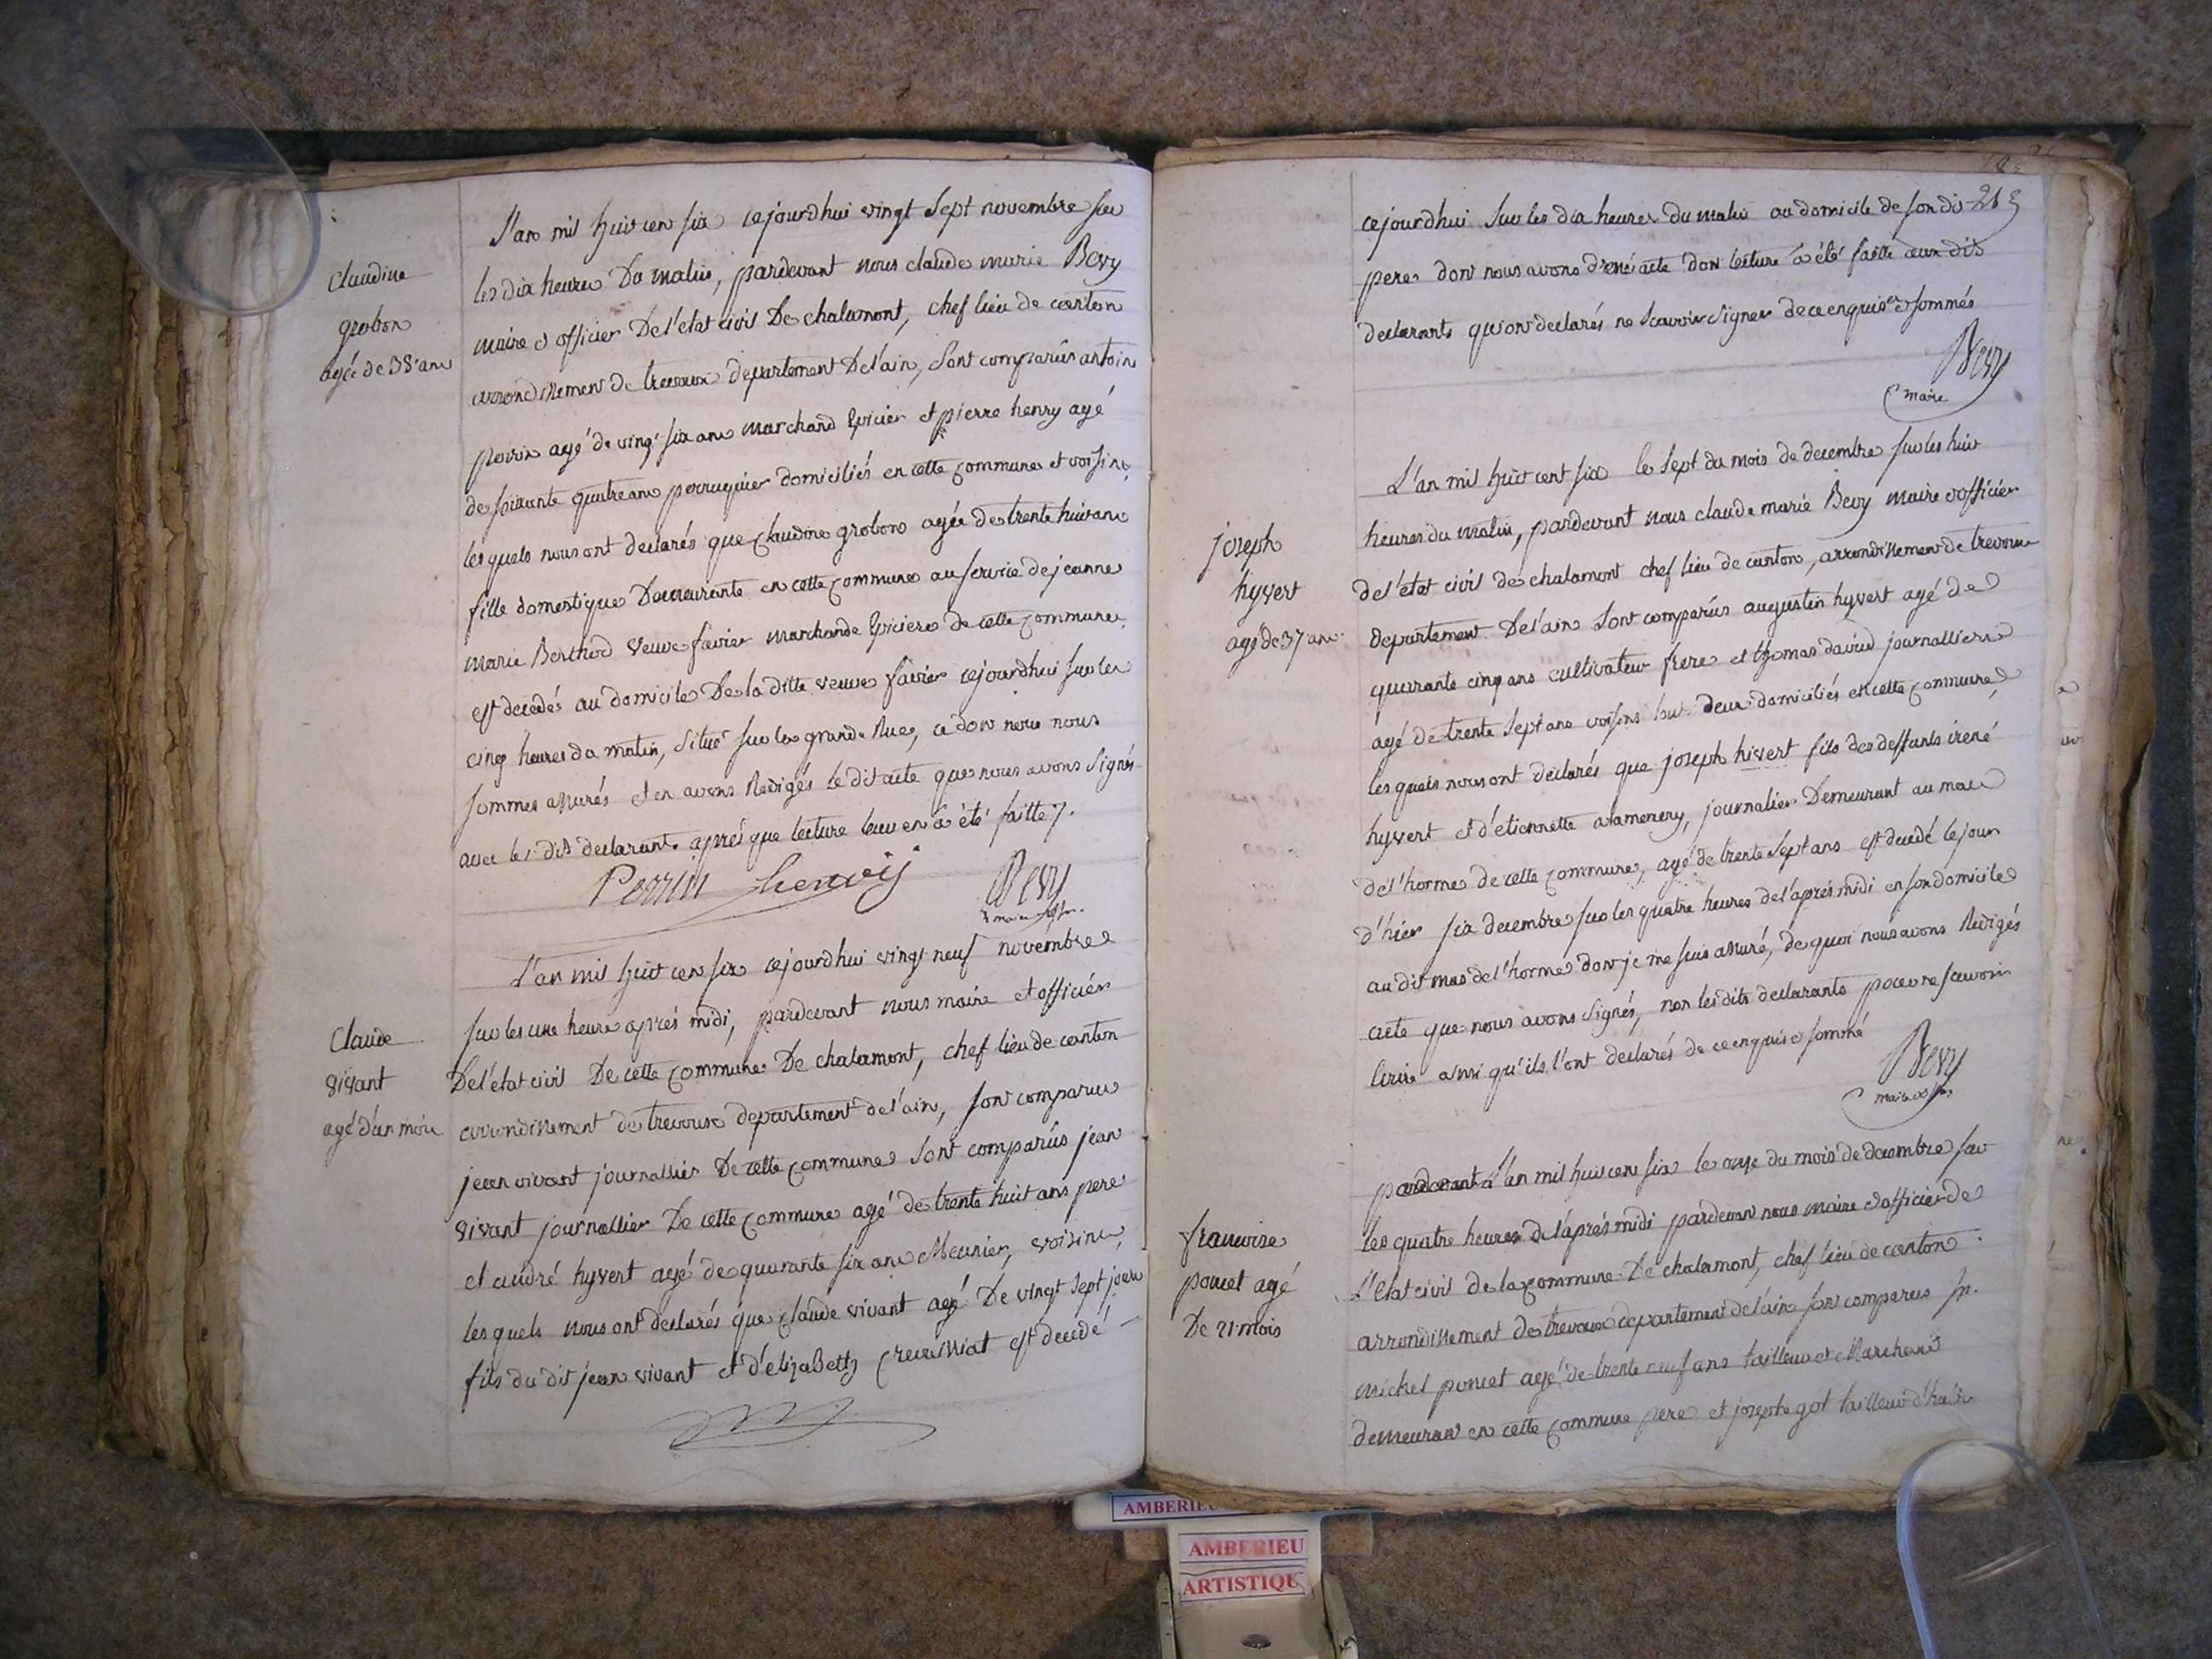 Claudine
grobon
agée de 38 ans
L'an mil huit cen six cejourdhui vingt sept novembre sur
les dix heures Du matin, pardevant nous claude marie Bevy
maire et officier De l'etat civil De chalamont, chef lieu de canton
arrondissement de trevoux departement De l'ain, sont comparûs antoine
perrin agé de vingt six ans marchand Epicier et pierre henry agé
de soixante quatre ans perruquier domiciliés en cette commune et voisins,
les quels nous ont declarés que claudine grobon agée de trente huit ans
fille domestique Demeurante en cette commune au service de jeanne
marie Berthod veuve favier marchande Epiciere de cette commune
est decedés au domicile De la ditte veuve favier cejourdhui sur les
cinq heures du matin, situé sur la grande Rue, ce dont nous nous
sommes assurés et en avons Redigés le dit acte que nous avons signés
avec les dits declarants après que lecture leur en à été faitte
Perrin henry Bevy
maire
Claude
vivant
agé d'un mois
L'an mil huit cen six cejourdhui vingt neuf novembre
sur les une heure après midi, pardevant nous maire et officier
De l'etat civil De cette commune De chalamont, chef lieu de canton
arrondissement de trevoux departement de l'ain, sont comparus
jean vivant journallier De cette commune sont comparûs jean
vivant journallier De cette commune agé de trente huit ans pere
et andré hyvert agé de quarante six ans Meunier, voisins,
les quels nous ont declarés que claude vivant agé De vingt sept jours
fils du dit jean vivant et d'elizabeth est decedé
213
cejourdhui sur les dix heures du matin au domicile de son dit
pere dont nous avons acte dont lecture à été faitte aux dits
declarants qui ont declarés ne scavoir signer de ce enquis et sommés
Bevy
maire
joseph
hyvert
agé de 37 ans
L'an mil huit cent six le sept du mois de decembre sur les huit
heures du matin, pardevant nous claude marie Bevy maire et officier
de l'etat civil de chalamont chef lieu de canton, arrondissement de trevoux
departement De l'ain sont comparûs augustin hyvert agé de
quarante cinq ans cultivateur frere et thomas david journallier
agé de trente sept ans voisins tous deux domiciliés en cette commune
les quels nous ont declarés que joseph hivert fils des deffunts irené
hyvert et d'etiennette journalier Demeurant au mas
de l'horme de cette commune, agé de trente sept ans est decedé le jour
d'hier six decembre sur les quatre heures de l'après midi en son domicile
au dit mas de l'horme dont je me suis assuré, de quoi nous avons Redigés
acte que nous avons signés, non les dits declarants pour ne scavoir
ecrire ainsi qu'ils l'ont declarés de ce enquis et sommé
Bevy
maire
francoise
poncet agé
De 21 mois
pardevant L'an mil huit cens six le onze du mois de decembre sur
les quatre heures de l'après midi pardevant nous maire et officier de
l'Etat civil de la commune De chalamont, chef lieu de canton
arrondissement de trevoux departement de l'ain sont comparus sr.
michel poncet agé de trente neuf ans tailleur et Marchand
demeurant en cette commune pere et joseph got tailleur d'habit
AMBERIEU
AMBERIEU
ARTISTIQUE